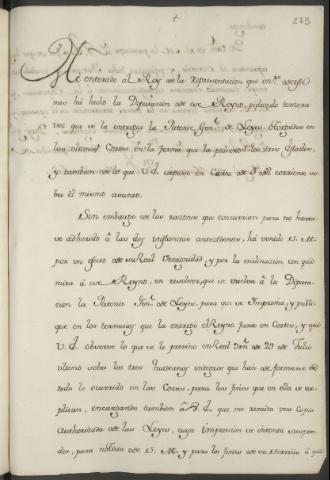 275
He enterado al Rey de la representacion que en 1º. de este
mes ha hecho la Diputacion de ese Reyno, pidiendo tercera
vez que se la entregue la Patente Genl. de Leyes otorgadas en
las ultimas Cortes en la forma que la pidieron los tres Estados,
y tambien de lo que V.S. expuso en Carta de 5 del corriente so-
bre el mismo asunto.
Sin embargo de las razones que concurrian para no haver-
se adherido à las dos instancias anteriores, ha venido S. M.
por un efecto de su Real Benignidad, y por la inclinacion con que
mira à ese Reyno, en resolver, que se vuelva à la Diputa-
cion la Patente Genl. de Leyes, para que se Imprima, y publi-
que en los terminos que la entregó el Reyno junto en Cortes, y que
V.S. observe lo que se le previno en Real Orn. de 29 de Julio
ultimo sobre los tres quadernos integros que han de formarse de
todo lo ocurrido en las Cortes, para los fines que en ella se ex-
plican, encargando tambien à V.S. que me remita una Copia
authorizada de las Leyes, cuya impresion se intenta suspen-
der, para noticia de S. M. y para los fines de su Servicio à que